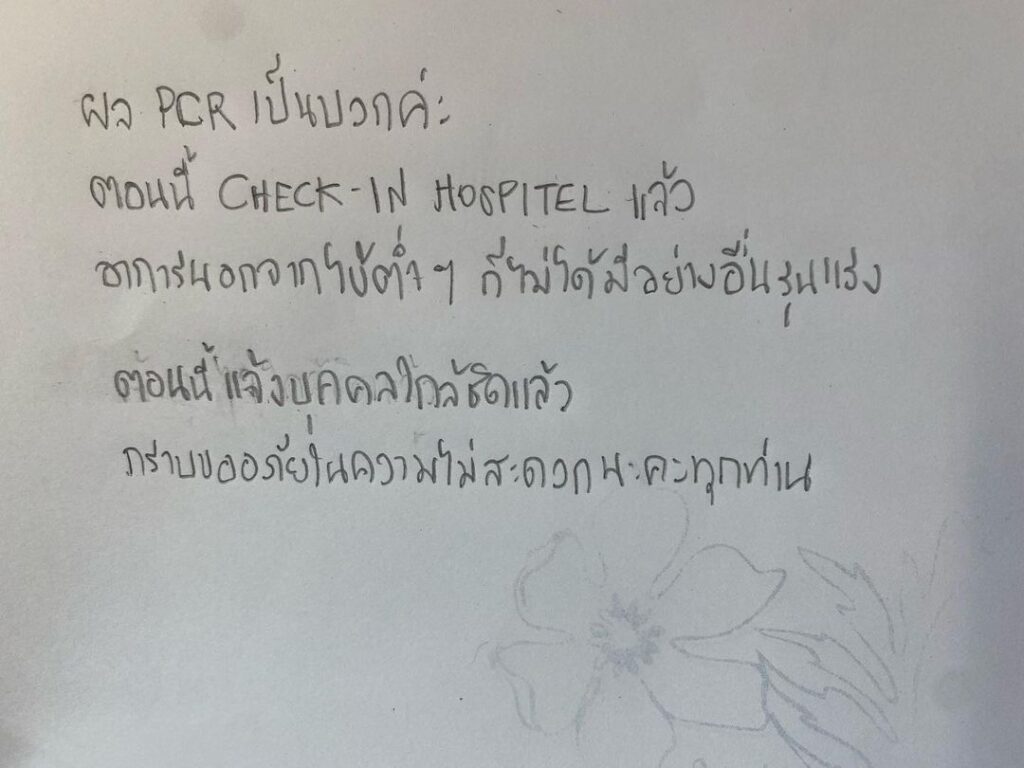 ผล PCR เป็นบวกค่ะ
ตอนนี้ CHECK-IN HOSPITEL แล้ว
อาการนอกจากไข้ต่ำๆ ก็ไม่ได้มีอย่างอื่นรุนแรง
ตอนนี้แจ้งบุคคลใกล้ชิดแล้ว
กราบขออภัยในความไม่สะดวกนะคะทุกท่าน